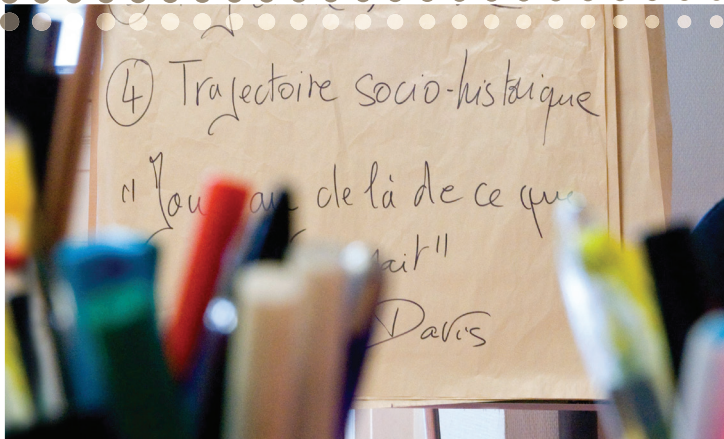 ④ Trajectoire socio-historique
"Jou au delà de ce que
ait"
Davis